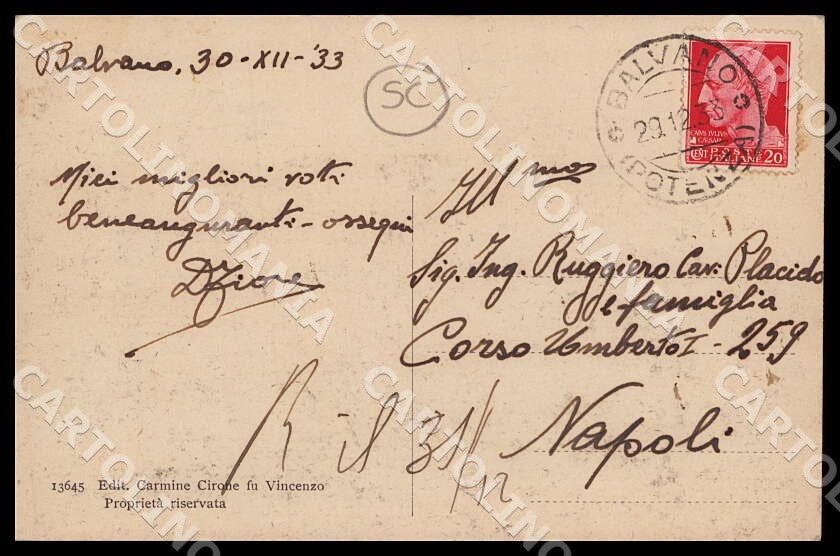 Balvano, 30-XII-'33
SC
BALVANO
(POTENZA)
29.12.33
POSTE
ITALIANE
CENT 20
Miei migliori voti
beneauguranti - ossequi
Ill mo
Sig. Ing. Ruggiero Cav. Placido
e famiglia
Corso Umberto I - 259
Napoli
R il 31/12
13645 Edit. Carmine Cirone fu Vincenzo
Proprietà riservata
CARTOLINOMANIA